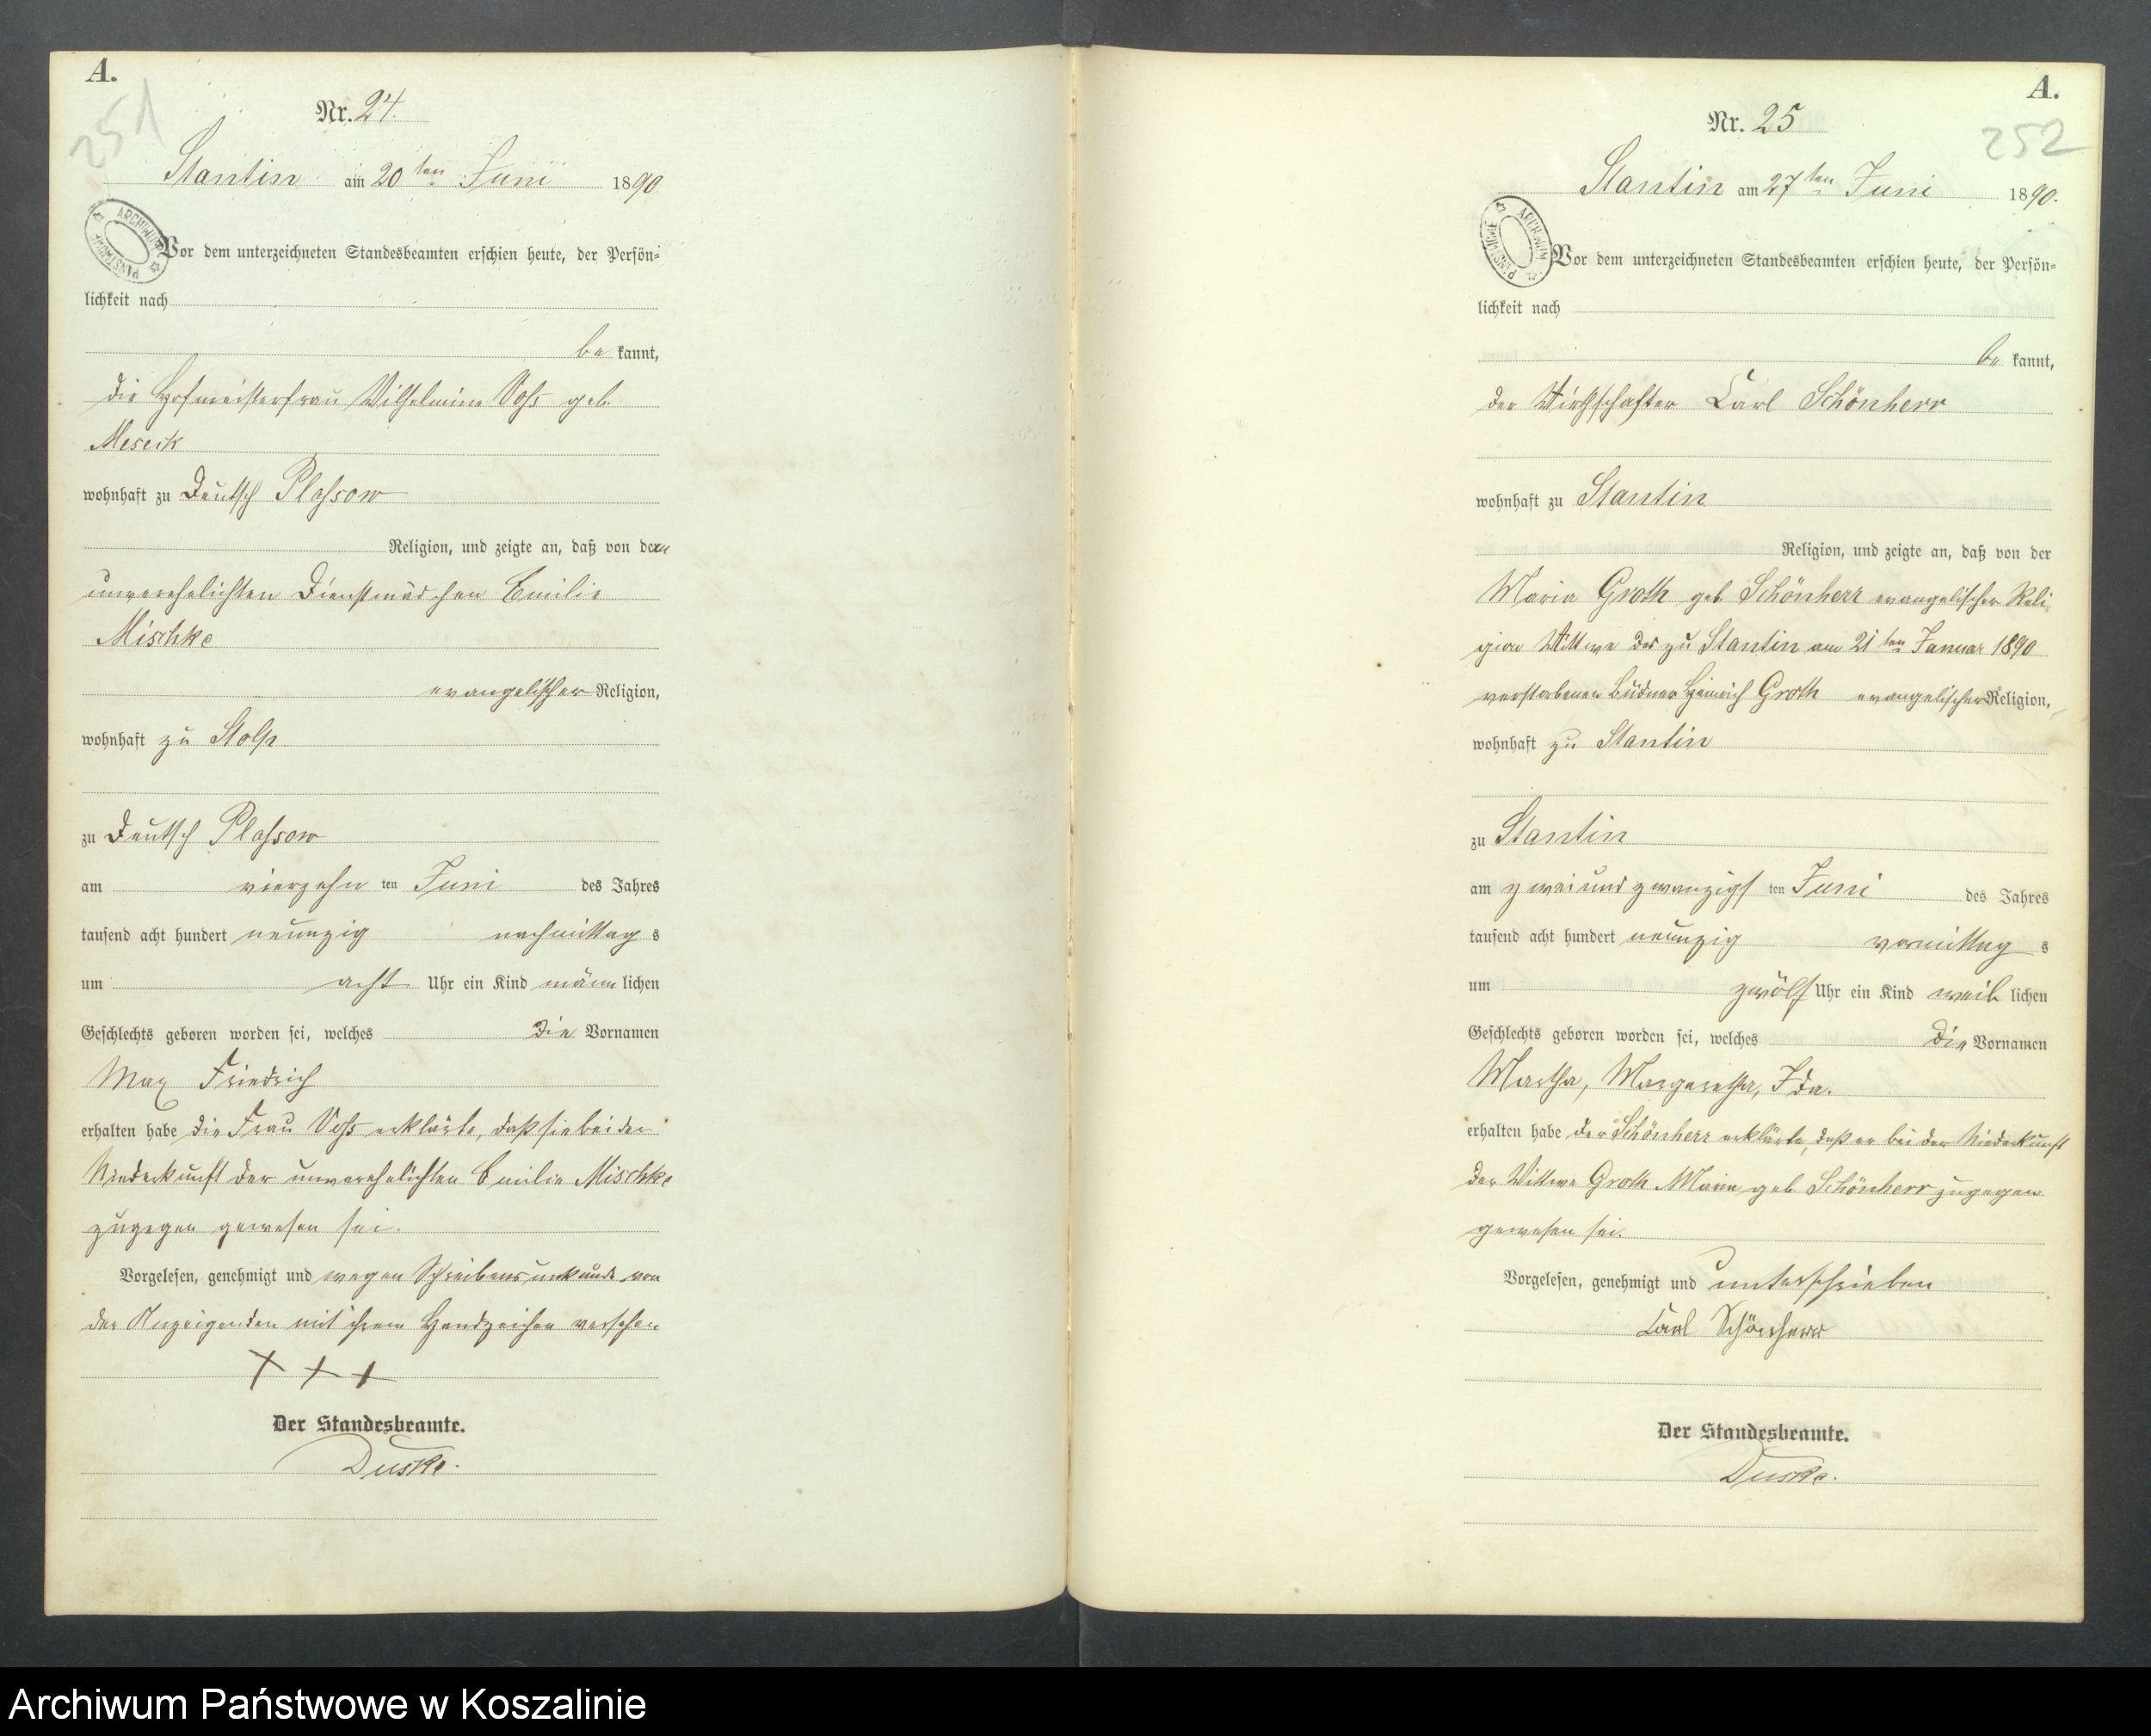 A.
251
Nr. 24.
Stantin am 20ten Juni 1890
ARCHIWUM PAŃSTWOWE
Vor dem unterzeichneten Standesbeamten erschien heute, der Persön-
lichkeit nach
be kannt,
die Hofmeisterfrau Wilhelmine Voß geb.
Meseck
wohnhaft zu Deutsch Plassow
Religion, und zeigte an, daß von der
unverehelichten Dienstmädchen Emilie
Mischke
evangelischer Religion,
wohnhaft zu Stolp
zu Deutsch Plassow
am vierzehn ten Juni des Jahres
tausend acht hundert neunzig nachmittag s
um acht Uhr ein Kind männ lichen
Geschlechts geboren worden sei, welches die Vornamen
Max Friedrich
erhalten habe die Frau Voß erklärte, daß sie bei der
Niederkunft der unverehelichten Emilie Mischke
zugegen gewesen sei.
Vorgelesen, genehmigt und wegen Schreibensunkunde von
der Anzeigenden mit ihrem Handzeichen versehen
+ + +
Der Standesbeamte.
Duske.
A.
252
Nr. 25
Stantin am 27ten Juni 1890.
ARCHIWUM PAŃSTWOWE
Vor dem unterzeichneten Standesbeamten erschien heute, der Persön-
lichkeit nach
be kannt,
der Wirthschafter Carl Schönherr
wohnhaft zu Stantin
Religion, und zeigte an, daß von der
Maria Groth geb. Schönherr evangelischer Reli-
gion Wittwe des zu Stantin am 21ten Januar 1890
verstorbenen Büdner Heinrich Groth evangelischer Religion,
wohnhaft zu Stantin
zu Stantin
am zweiundzwanzigs ten Juni des Jahres
tausend acht hundert neunzig vormittag s
um zwölf Uhr ein Kind weib lichen
Geschlechts geboren worden sei, welches die Vornamen
Martha, Margaretha, Ida.
erhalten habe der Schönherr erklärte, daß er bei der Niederkunft
der Wittwe Groth Marie geb. Schönherr zugegen
gewesen sei.
Vorgelesen, genehmigt und unterschrieben
Carl Schönherr
Der Standesbeamte.
Duske.
Archiwum Państwowe w Koszalinie